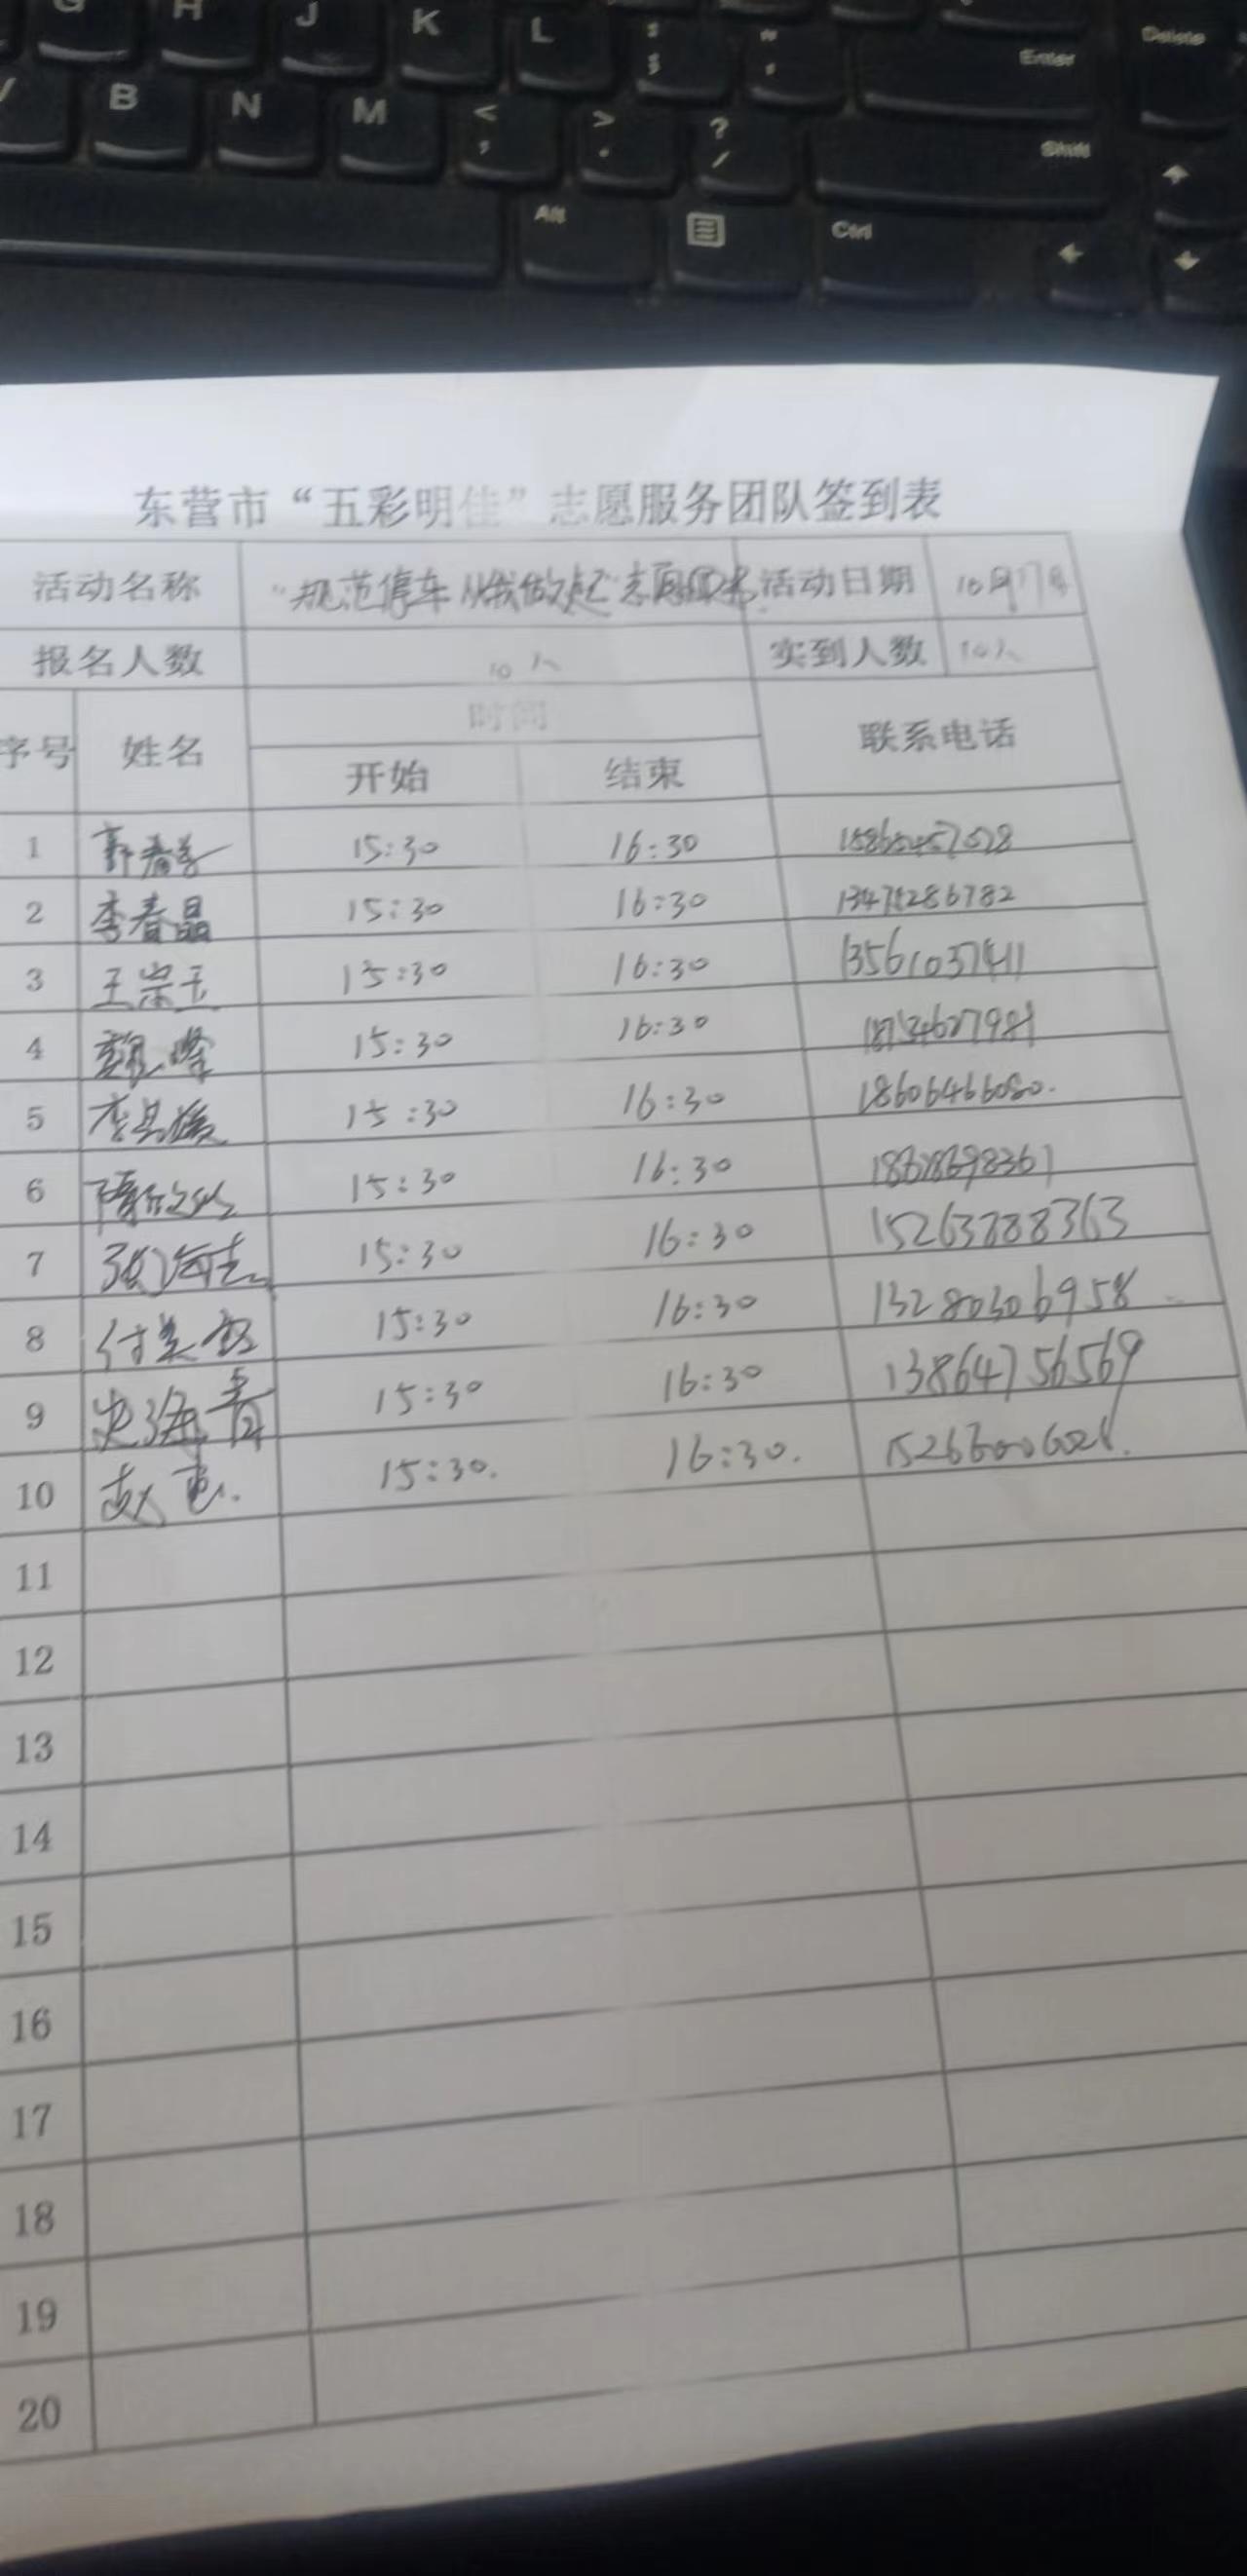 G H J K L : ; " ' Enter Delete
V B N M < , > . ? / Shift
Alt Ctrl
东营市“五彩明佳”志愿服务团队签到表
活动名称 “规范停车 从我做起”志愿服务 活动日期 10月17日
报名人数 10人 实到人数 10人
序号 姓名 时间 联系电话
开始 结束
1 15:30 16:30
2 李春晶 15:30 16:30 13475286782
3 王宗玉 15:30 16:30 13561037411
4 15:30 16:30
5 15:30 16:30 18606466080.
6 15:30 16:30
7 15:30 16:30 15263788363
8 15:30 16:30 13280306958
9 史海青 15:30 16:30 13864756569
10 赵惠. 15:30. 16:30.
11
12
13
14
15
16
17
18
19
20